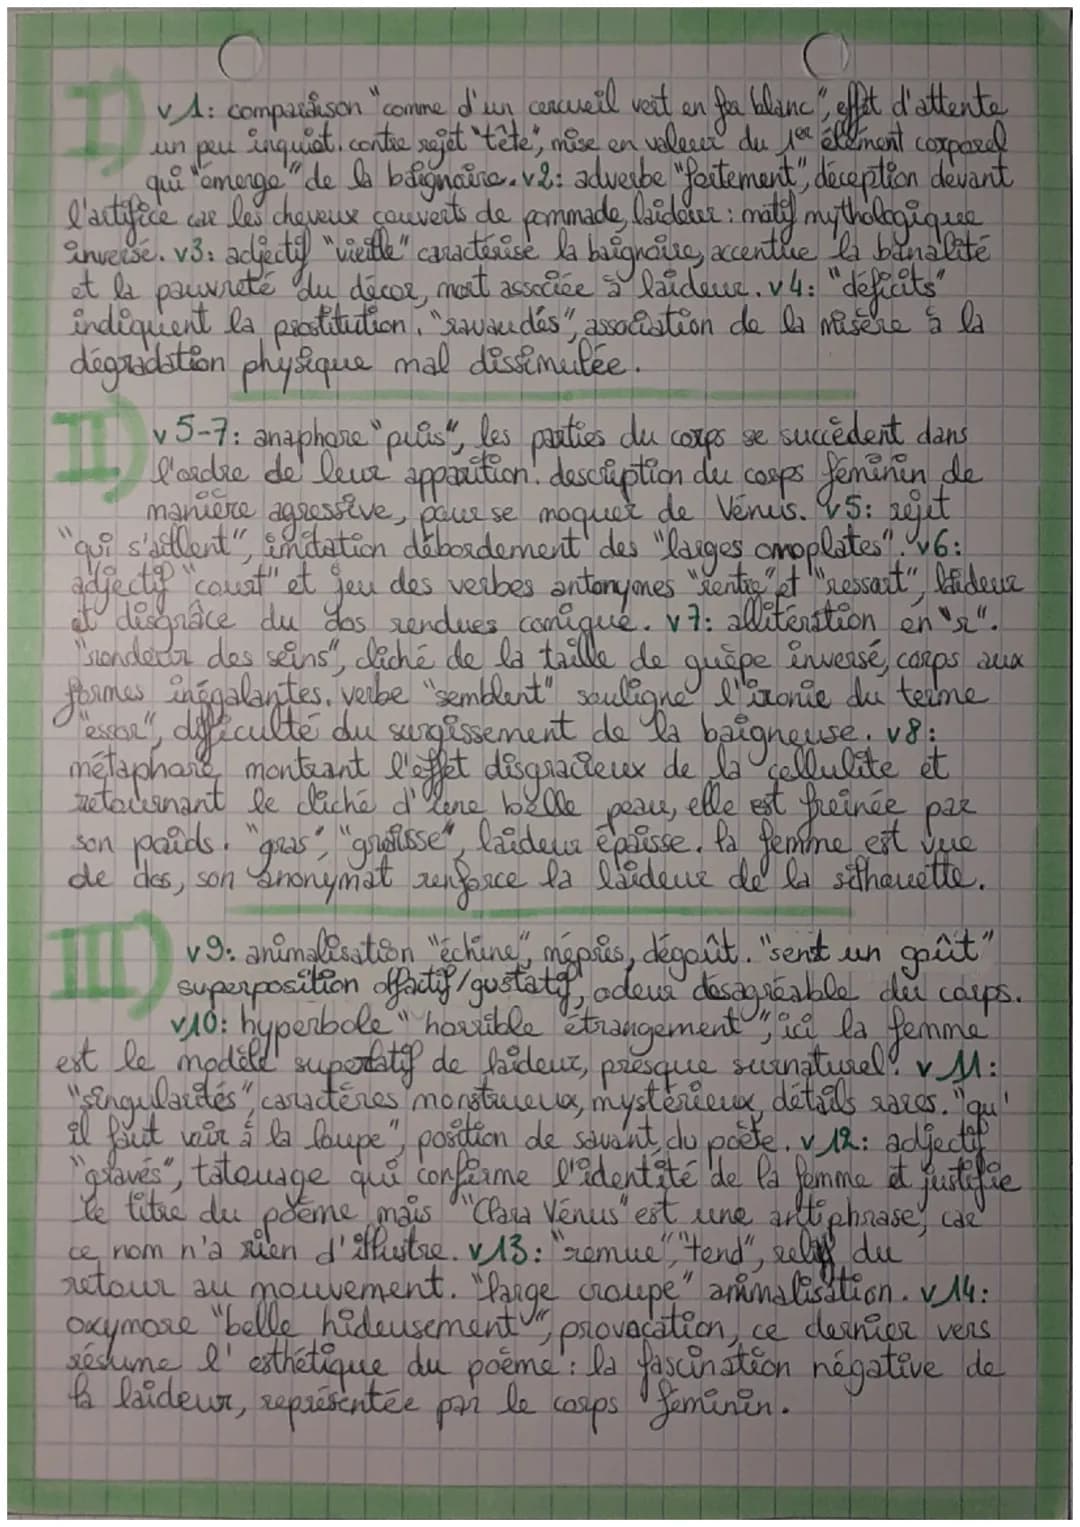 I)
v1: comparaison "comme d'un cercueil vert en fer blanc", effet d'attente
un peu inquiet. contre rejet "tête", mise en valeur du 1er élément corporel
qui "émerge" de la baignoire. v2: adverbe "fortement", déception devant
l'artifice car les cheveux couverts de pommade, laideur : motif mythologique
inversé. v3: adjectif "vieille" caractérise la baignoire, accentue la banalité
et la pauvreté du décor, mort associée à laideur. v4: "déficits"
indiquent la prostitution. "ravaudés", association de la misère à la
dégradation physique mal dissimulée.
II)
v5-7: anaphore "puis", les parties du corps se succèdent dans
l'ordre de leur apparition. description du corps féminin de
manière agressive, pour se moquer de Vénus. v5: rejet
"qui s'aillent", imitation débordement des "larges omoplates". v6:
adjectif "court" et jeu des verbes antonymes "rentre" et "ressort", laideur
et disgrâce du dos rendues comique. v7: allitération en "r".
"rondeur des seins", cliché de la taille de guêpe inversé, corps aux
formes inégalantes. verbe "semblent" souligne l'ironie du terme
"essor", difficulté du surgissement de la baigneuse. v8:
métaphore montrant l'effet disgracieux de la cellulite et
retournant le cliché d'une belle peau, elle est freinée par
son poids. "gras", "graisse", laideur épaisse. la femme est vue
de dos, son anonymat renforce la laideur de la silhouette.
III)
v9: animalisation "échine", mépris, dégoût. "sent un goût"
superposition olfactif/gustatif, odeur désagréable du corps.
v10: hyperbole "horrible étrangement", ici la femme
est le modèle superlatif de laideur, presque surnaturel. v11:
"singularités", caractères monstrueux, mystérieux, détails rares. "qu'
il faut voir à la loupe", position de savant du poète. v12: adjectif
"gravés", tatouage qui confirme l'identité de la femme et justifie
le titre du poème mais "Clara Vénus" est une antiphrase, car
ce nom n'a rien d'illustre. v13: "remue", "tend", du
retour au mouvement. "large croupe" animalisation. v14:
oxymore "belle hideusement", provocation, ce dernier vers
résume l'esthétique du poème : la fascination négative de
la laideur, représentée par le corps féminin.